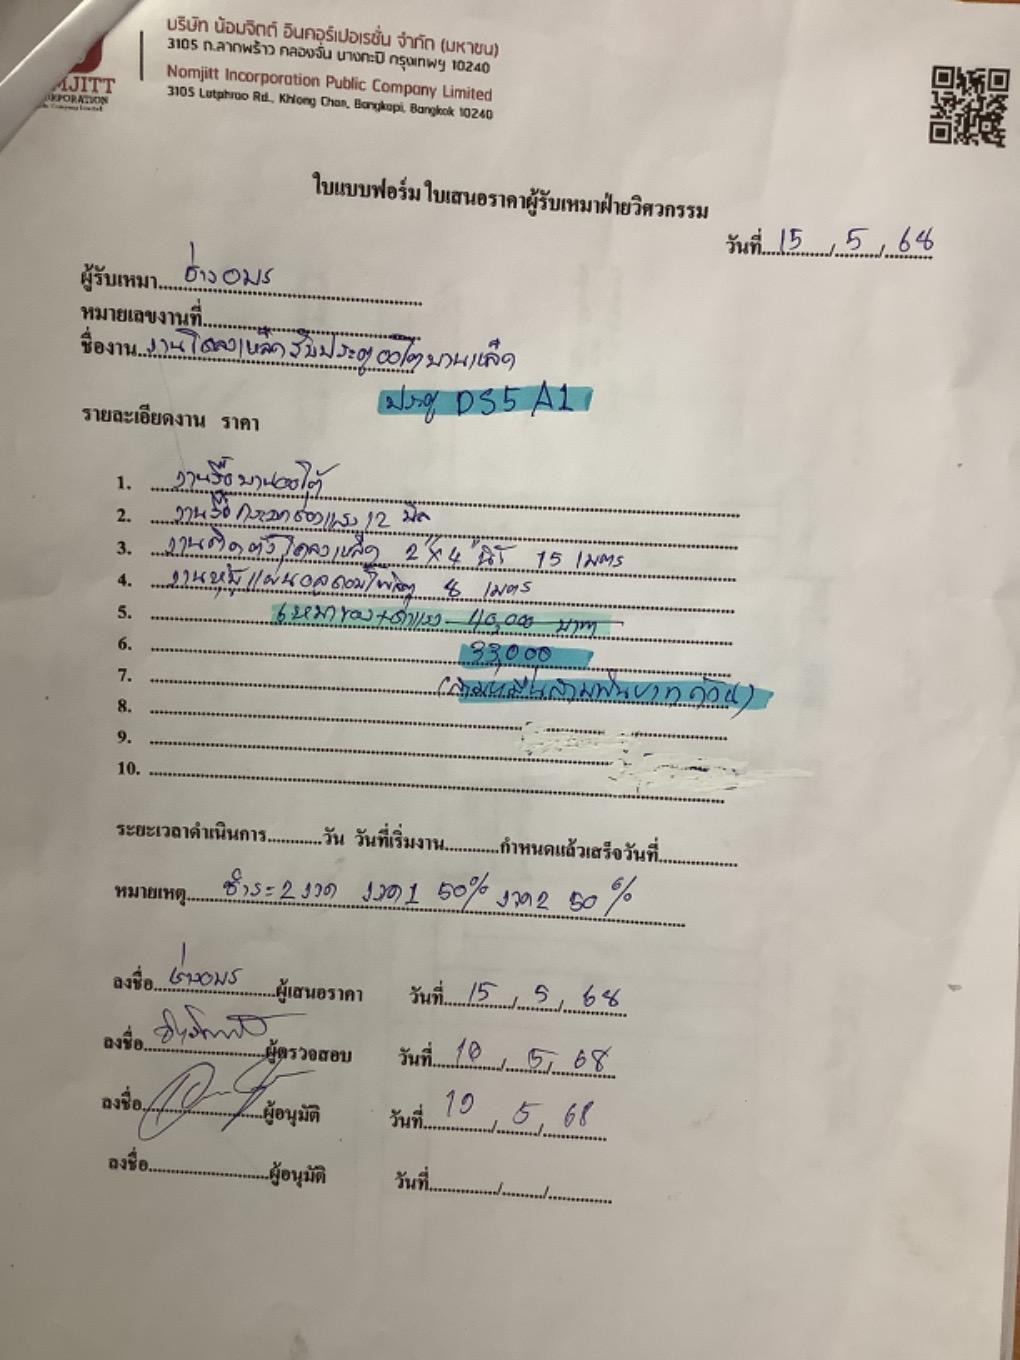 บริษัท น้อมจิตต์ อินคอร์เปอเรชั่น จำกัด (มหาชน)
3105 ถ.ลาดพร้าว คลองจั่น บางกะปิ กรุงเทพฯ 10240
MJITT
Nomjitt Incorporation Public Company Limited
3105 Latphrao Rd., Khlong Chan, Bangkapi, Bangkok 10240
ใบแบบฟอร์ม ใบเสนอราคาผู้รับเหมาฝ่ายวิศวกรรม
วันที่ 15 / 5 / 68
ผู้รับเหมา ช่างอมร
หมายเลขงานที่
ชื่องาน งานโครงเหล็กรับประตูออโต้บานเหล็ก
ประตู DS5 A1
รายละเอียดงาน ราคา
1. งานรื้อบานออโต้
2. งานรื้อกระจกช่องแสง 12 มิล
3. งานติดตั้งโครงเหล็ก 2"x4" นิ้ว 15 เมตร
4. งานหุ้มแผ่นอลูคอมโพสิต 8 เมตร
5. เหมาของ+ค่าแรง 40,000 บาท
6. 33,000
7. (สามหมื่นสามพันบาทถ้วน)
8.
9.
10.
ระยะเวลาดำเนินการ วัน วันที่เริ่มงาน กำหนดแล้วเสร็จวันที่
หมายเหตุ ชำระ 2 งวด งวด 1 50% งวด 2 50%
ลงชื่อ ช่างอมร ผู้เสนอราคา วันที่ 15 / 5 / 68
ลงชื่อ ผู้ตรวจสอบ วันที่ / 5 / 68
ลงชื่อ ผู้อนุมัติ วันที่ 19 / 5 / 68
ลงชื่อ ผู้อนุมัติ วันที่ / /